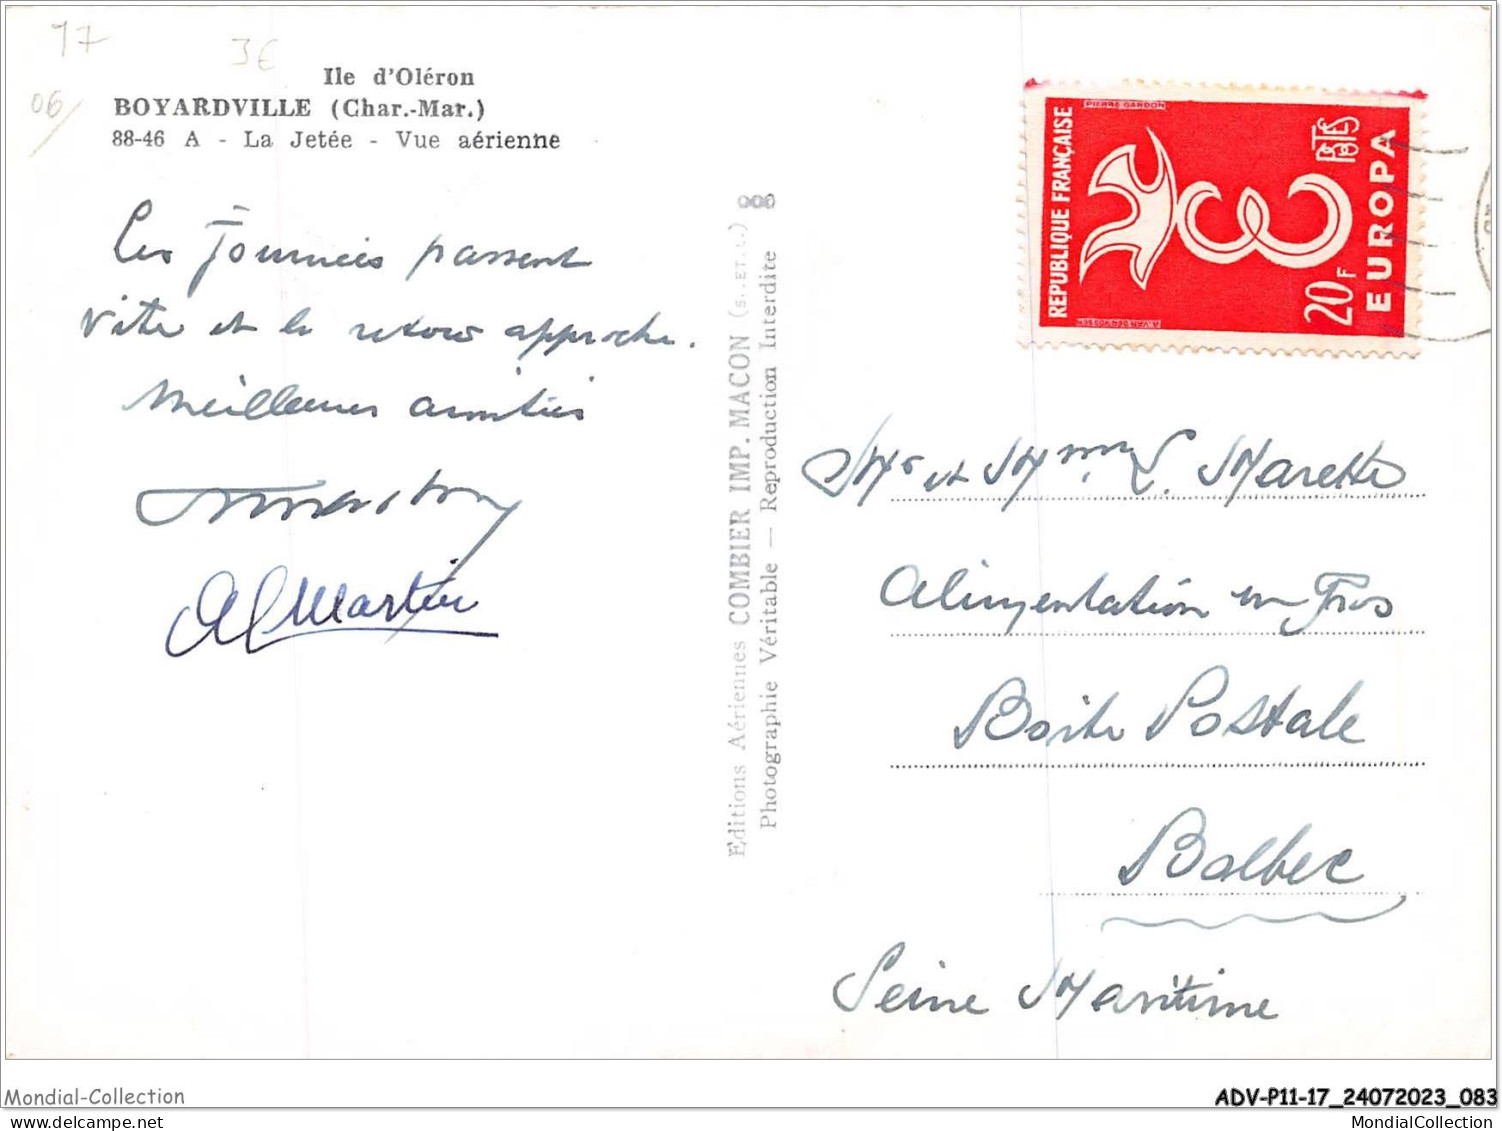 97
3€
06/
Ile d'Oléron
BOYARDVILLE (Char.-Mar.)
88-46 A - La Jetée - Vue aérienne
Les Journées passent
vite et le retour approche.
Meilleures amitiés
Martin
Editions Aériennes COMBIER IMP. MACON (S.-ET-L.)
Photographie Véritable — Reproduction Interdite
PIERRE GANDON
REPUBLIQUE FRANÇAISE
A. VAN DER VOSSEN
POSTES
20F
EUROPA
Mr et Mme L. Marette
Alimentation en Gros
Boite Postale
Bolbec
Seine Maritime
Mondial-Collection
ADV-P11-17_24072023_083
www.delcampe.net
MondialCollection